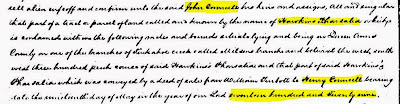 sell alien enfeoff and confirm unto the said John Connell his heirs and assigns, All and singular
that part of a tract or parcel of land called and known by the name of Hawkins Pharsalia which
is contained with in the following metes and bounds situate lying and being in Queen Anns
County on one of the branches of Tuckahoe creek called beginning to the west, south
west three hundred perch course of said Hawkins's Pharsalia and that part of said Hawkins's
Pharsalia which was conveyed by a deed of sale from William Turbutt to Henry Connell bearing
date the nineteenth day of May in the year of our Lord seventeen hundred and twenty nine.